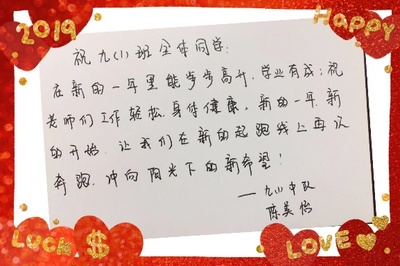 2019
HAPPY
祝九(1)班全体同学:
在新的一年里能步步高升,学业有成;祝
老师们工作轻松,身体健康。新的一年,新
的开始,让我们在新的起跑线上再次
奔跑,冲向阳光下的新希望!
——九(1)中队
陈美怡
LUCK $
LOVE